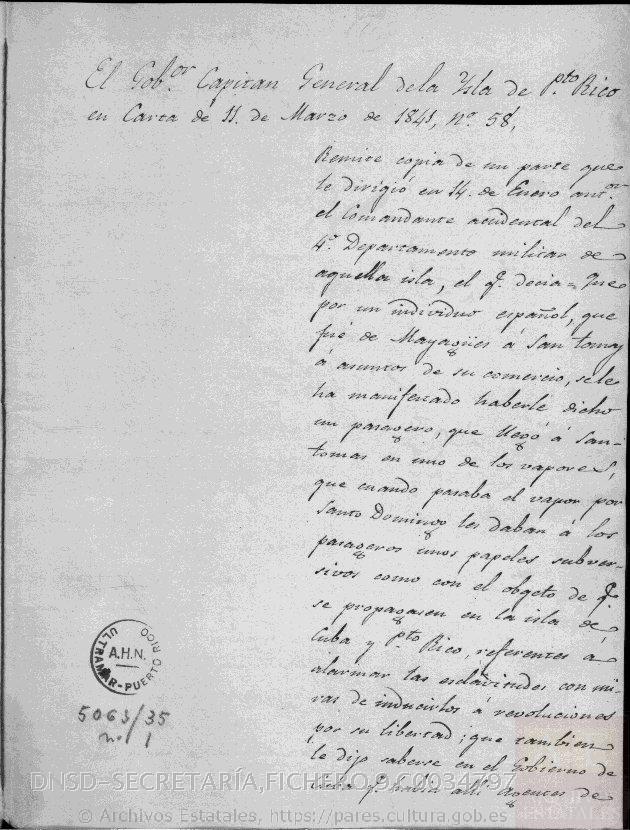 El Gob.or Capitan General dela Ysla de P.to Rico
en Carta de 11. de Marzo de 1841, nº 58,
Remite copia de un parte que
le dirigió en 14. de Enero ant.or
el Comandante accidental del
4.º Departamento militar de
aquella isla, el q. decia = Que
por un individuo español, que
fué de Mayagües á San tomas
á asuntos de su comercio, se le
ha manifestado haberle dicho
un pasagero, que llegó á San-
tomas en uno de los vapores,
que cuando pasaba el vapor por
Santo Domingo les daban á los
pasageros unos papeles subver-
sivos como con el objeto de q.
se propagasen en la isla de
Cuba y P.to Rico, referentes á
alarmar las esclavitudes con mi-
ras de inducirlos á revoluciones
por su libertad; que tambien
le dijo saberse en el Gobierno de
q. habia alli agentes de
ULTRAMAR-PUERTO RICO
A.H.N.
5063/35
nº 1
DNSD-SECRETARÍA,FICHERO,9,C0034797
© Archivos Estatales, https://pares.cultura.gob.es